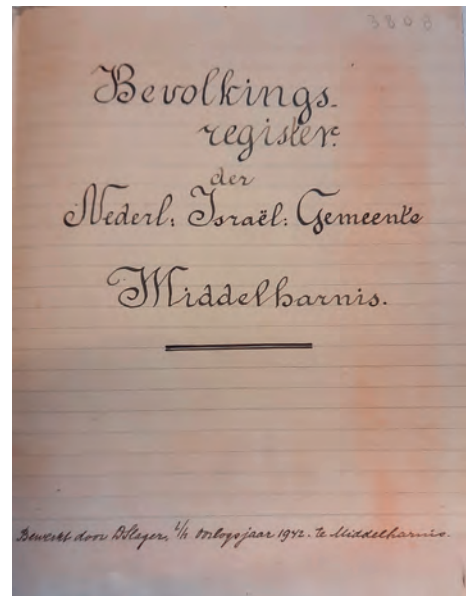 3808
Bevolkings-
register.
der
Nederl: Israël: Gemeente
Middelharnis.
Bewerkt door DSleger, i/h Oorlogsjaar 1942. te Middelharnis.